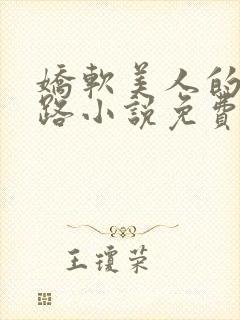 嬌軟美人的
路小說免費
王瓊荣